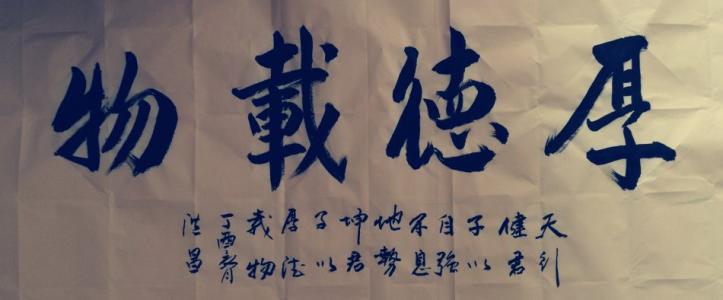 厚德載物
天行
健君
子以
自强
不息
地勢
坤君
子以
厚德
载物
丁酉
洪昌